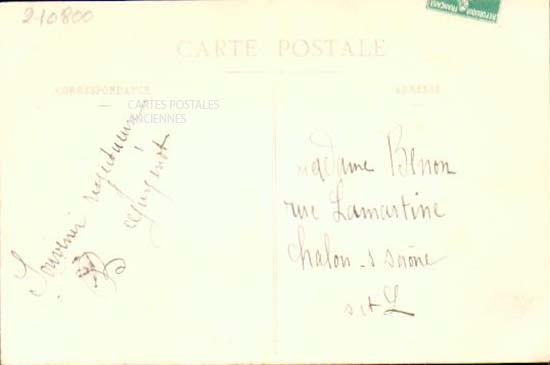 210800
CARTE POSTALE
CORRESPONDANCE
CARTES POSTALES
ANCIENNES
Souvenir respectueux
ADRESSE
Madame Benon
rue Lamartine
Chalon s Saône
s et L